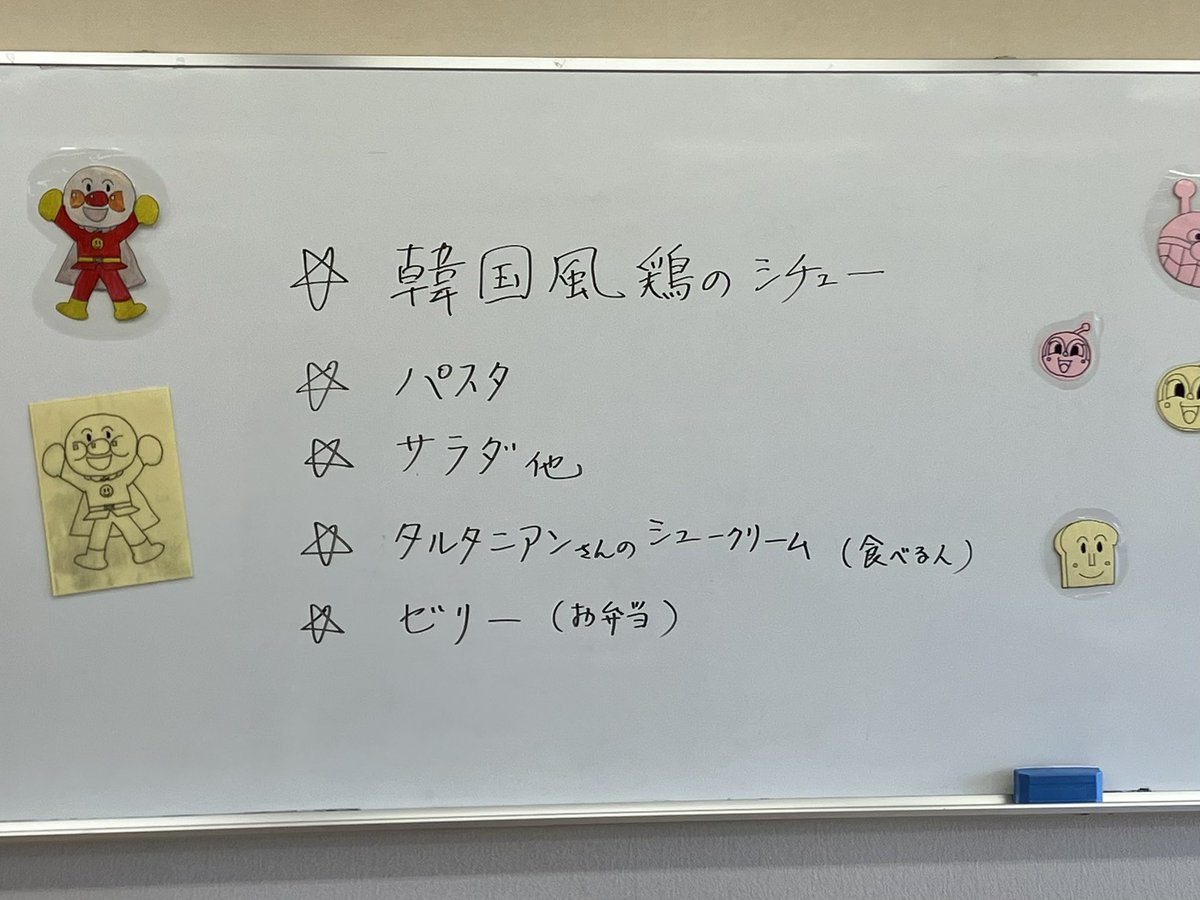 ☆ 韓国風鶏のシチュー
☆ パスタ
☆ サラダ他
☆ タルタニアンさんのシュークリーム (食べる人)
☆ ゼリー (お弁当)